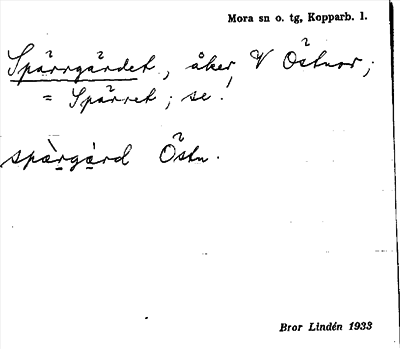 Mora sn o. tg, Kopparb. l.
Spärrgärdet, åker, V Östnor;
= Spärret; se !
spàrgàrd Östn.
Bror Lindén 1933